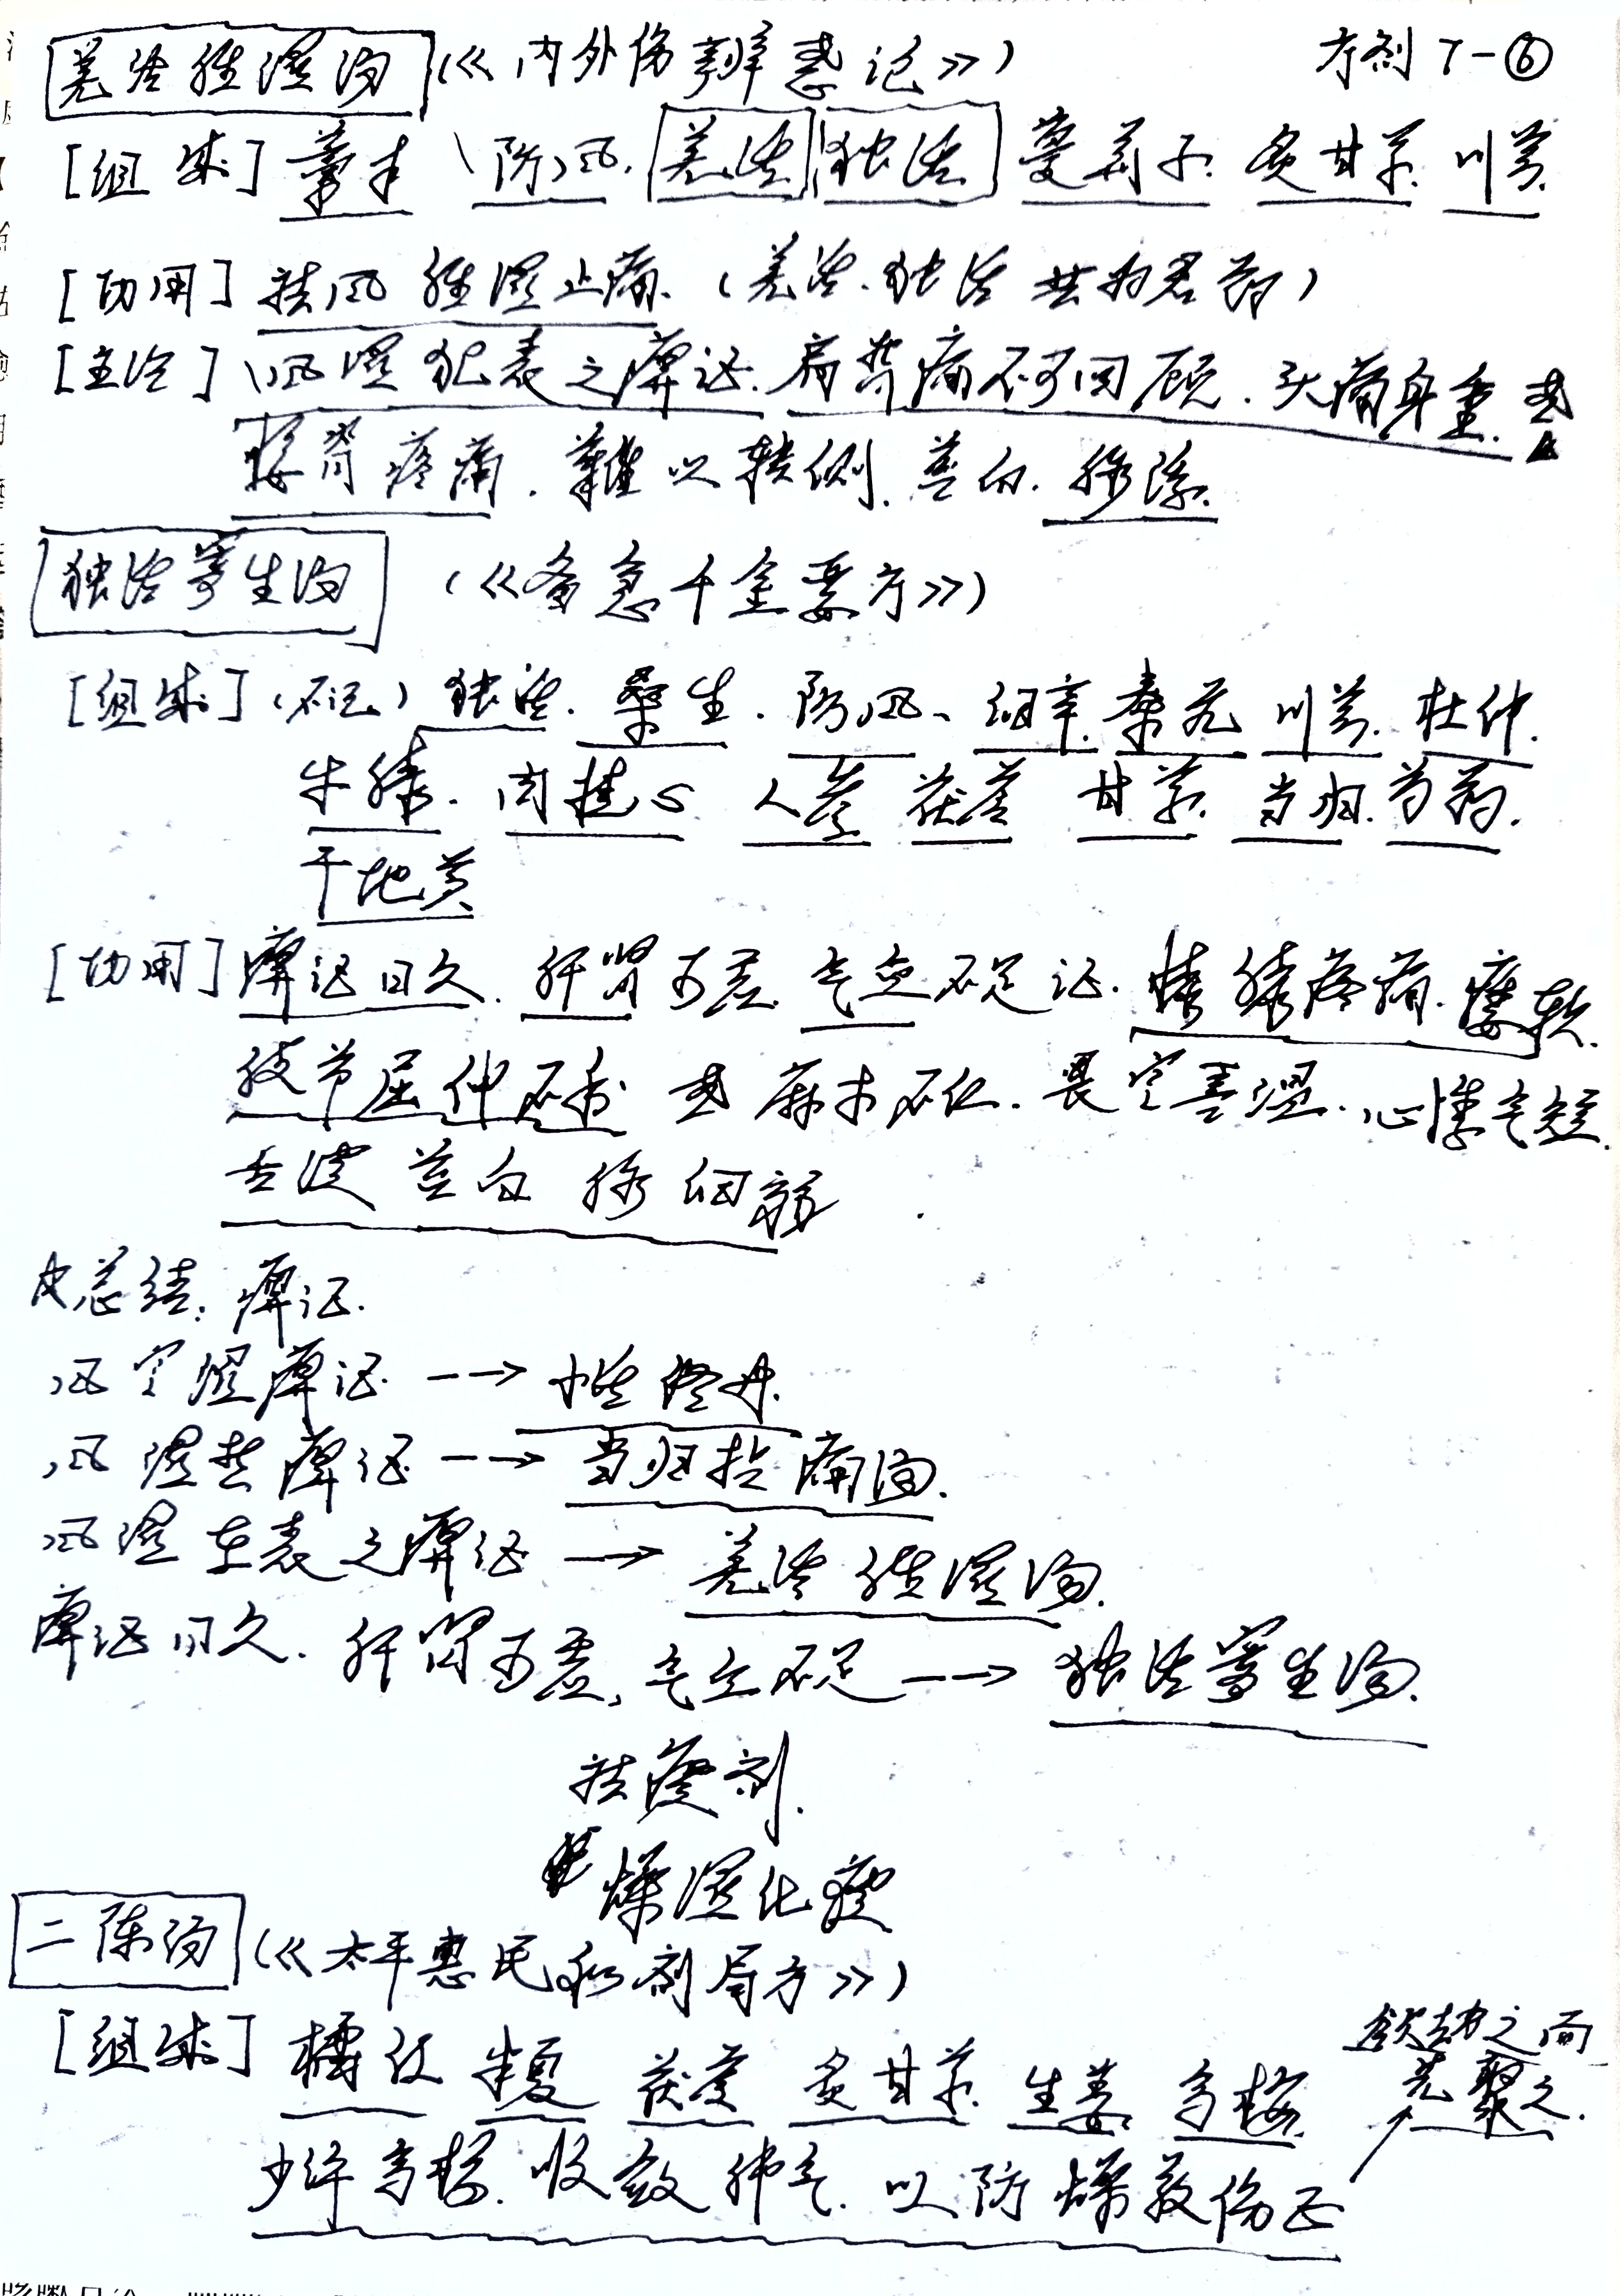 羌活胜湿汤（《内外伤辨惑论》） 方剂7-⑥
[组成] 藁本、防风.羌活 独活 蔓荆子.炙甘草.川芎.
[功用] 祛风 胜湿止痛.（羌活.独活 共为君药）
[主治] 风湿犯表之痹证.肩背痛不可回顾.头痛身重.或
腰脊疼痛.難以转侧.苔白.脉浮.
独活寄生汤 （《备急千金要方》）
[组成]（不记）独活.桑生.防风、细辛.秦艽 川芎.杜仲.
牛膝.肉桂心 人参 茯苓 甘草.当归.芍药.
干地黄
[功用] 痹证日久.肝肾两虚.气血不足证.腰膝疼痛.痿软.
肢节屈伸不利 或麻木不仁.畏寒喜温.心悸气短.
舌淡 苔白 脉细弱
总结:痹证.
风寒湿痹证 --→ 小活络丹.
风湿热痹证 --→ 当归拈痛汤.
风湿在表之痹证 —→ 羌活胜湿汤.
痹证日久.肝肾两虚,气血不足 --→ 独活寄生汤.
祛痰剂.
燥湿化痰
二陈汤（《太平惠民和剂局方》）
[组成] 橘红 半夏 茯苓 炙甘草.生姜.乌梅.
欲劫之而
先聚之.
少许乌梅.收敛肺气.以防燥散伤正